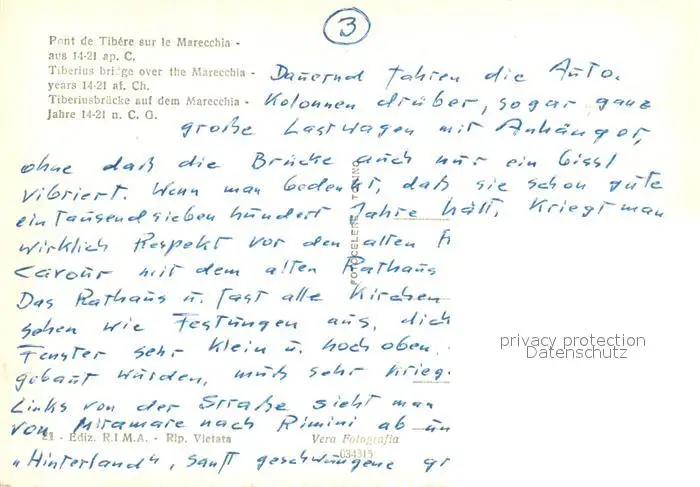 3
Pont de Tibére sur le Marecchia -
aus 14-21 ap. C.
Tiberius bridge over the Marecchia -
years 14-21 af. Ch.
Tiberiusbrücke auf dem Marecchia -
Jahre 14-21 n. C. G.
Dauernd fahren die Auto-
Kolonnen drüber, sogar ganz
große Lastwagen mit Anhänger,
ohne daß die Brücke auch nur ein bissl
vibriert. Wenn man bedenkt, daß sie schon gute
eintausendsieben hundert Jahre hält, kriegt man
wirklich Respekt vor den alten
Cavour mit dem alten Rathaus
Das Rathaus u. fast alle Kirchen
sehen wie Festungen aus, dick
Fenster sehr klein u. hoch oben.
gebaut wurden, muß sehr krieg
Links von der Straße sieht man
von Miramare nach Rimini ab un
"Hinterland", sanft geschwungene
21 - Ediz. R.I.M.A. - Rip. Vietata
Vera Fotografia
034315
FOTOCELERE - TORINO
privacy protection
Datenschutz